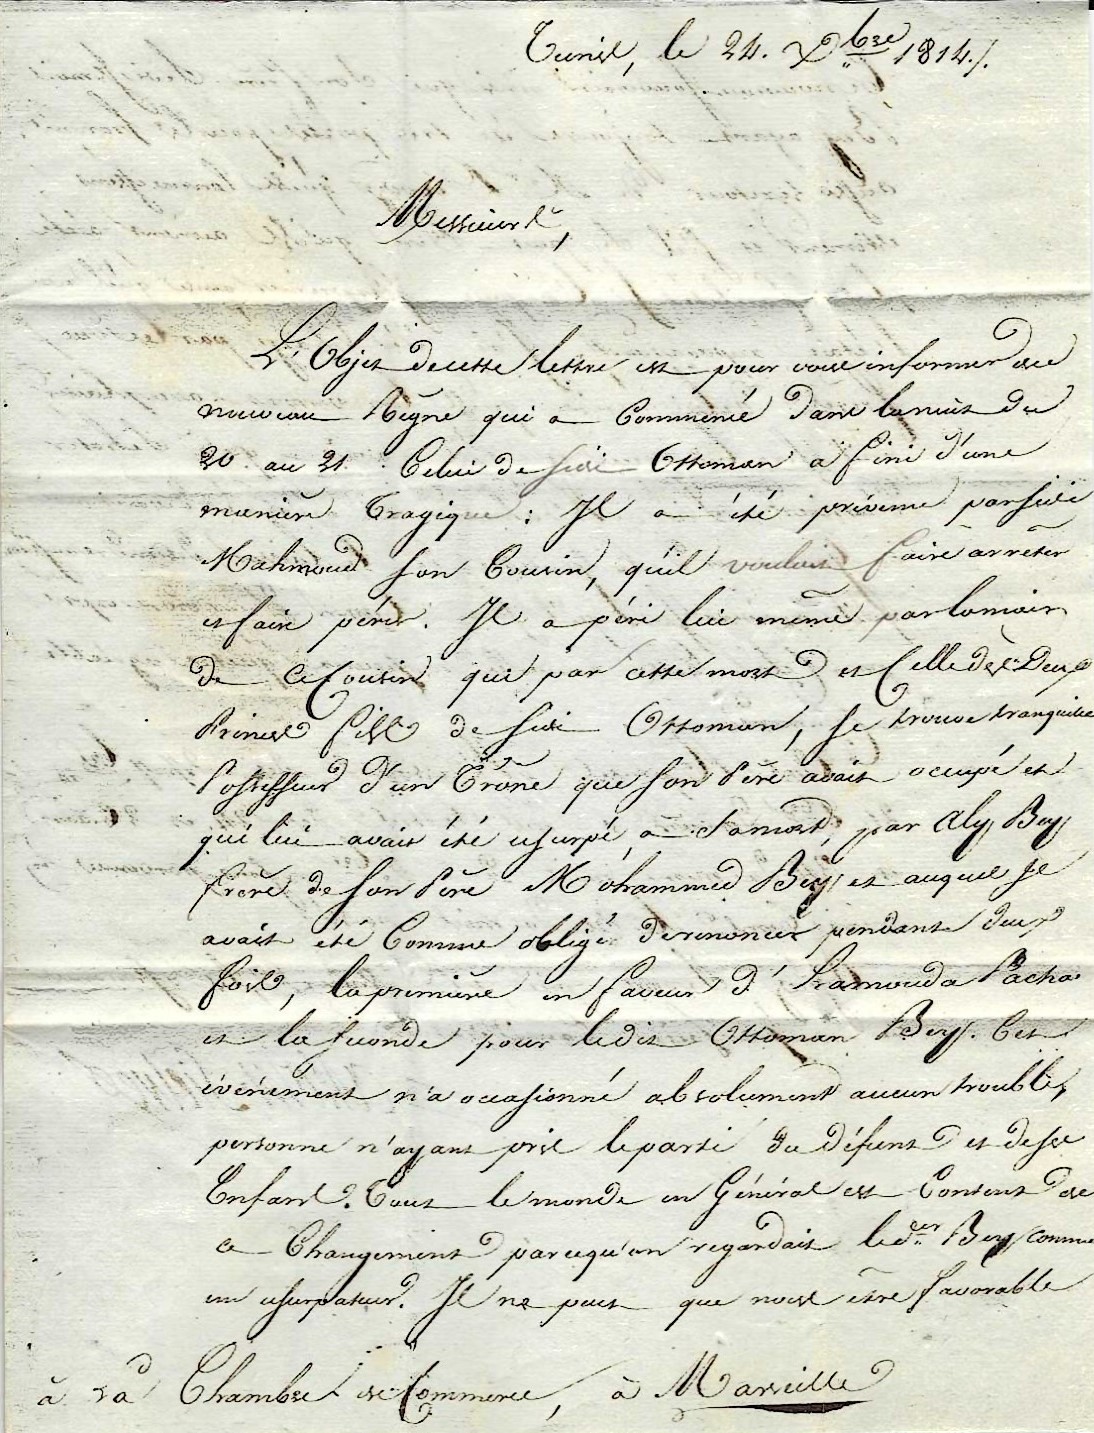 Tunis, le 24. Xbre 1814./.
Messieurs,
L'Objet de cette lettre est pour vous informer de ce
nouveau Règne qui a Commencé dans la nuit du
20 au 21. Celui de Sidi Ottoman a fini d'une
manière Tragique : Il a été prévenu par Sidi
Mahmoud son Cousin, qu'il voulait faire arrêter
et faire périr. Il a péri lui même par la main
de ce Cousin qui par cette mort et Celle des Deux
Princes fils de Sidi Ottoman, se trouve tranquille
Possesseur d'un Trône que son Père avait occupé et
qui lui avait été usurpé, à sa mort, par Aly Bey
frère de son Père Mohammed Bey et auquel il
avait été Comme obligé de renoncer pendant deux
fois, la première en faveur d'Hamouda Pacha
et la seconde pour ledit Ottoman Bey. Cet
événement n'a occasionné absolument aucun trouble,
personne n'ayant pris le parti du défunt et de ses
Enfans. Tout le monde en Général est Content de
ce Changement parcequ'on regardait le der Bey comme
un usurpateur. Il ne peut que nous être favorable
à la Chambre de Commerce, à Marseille